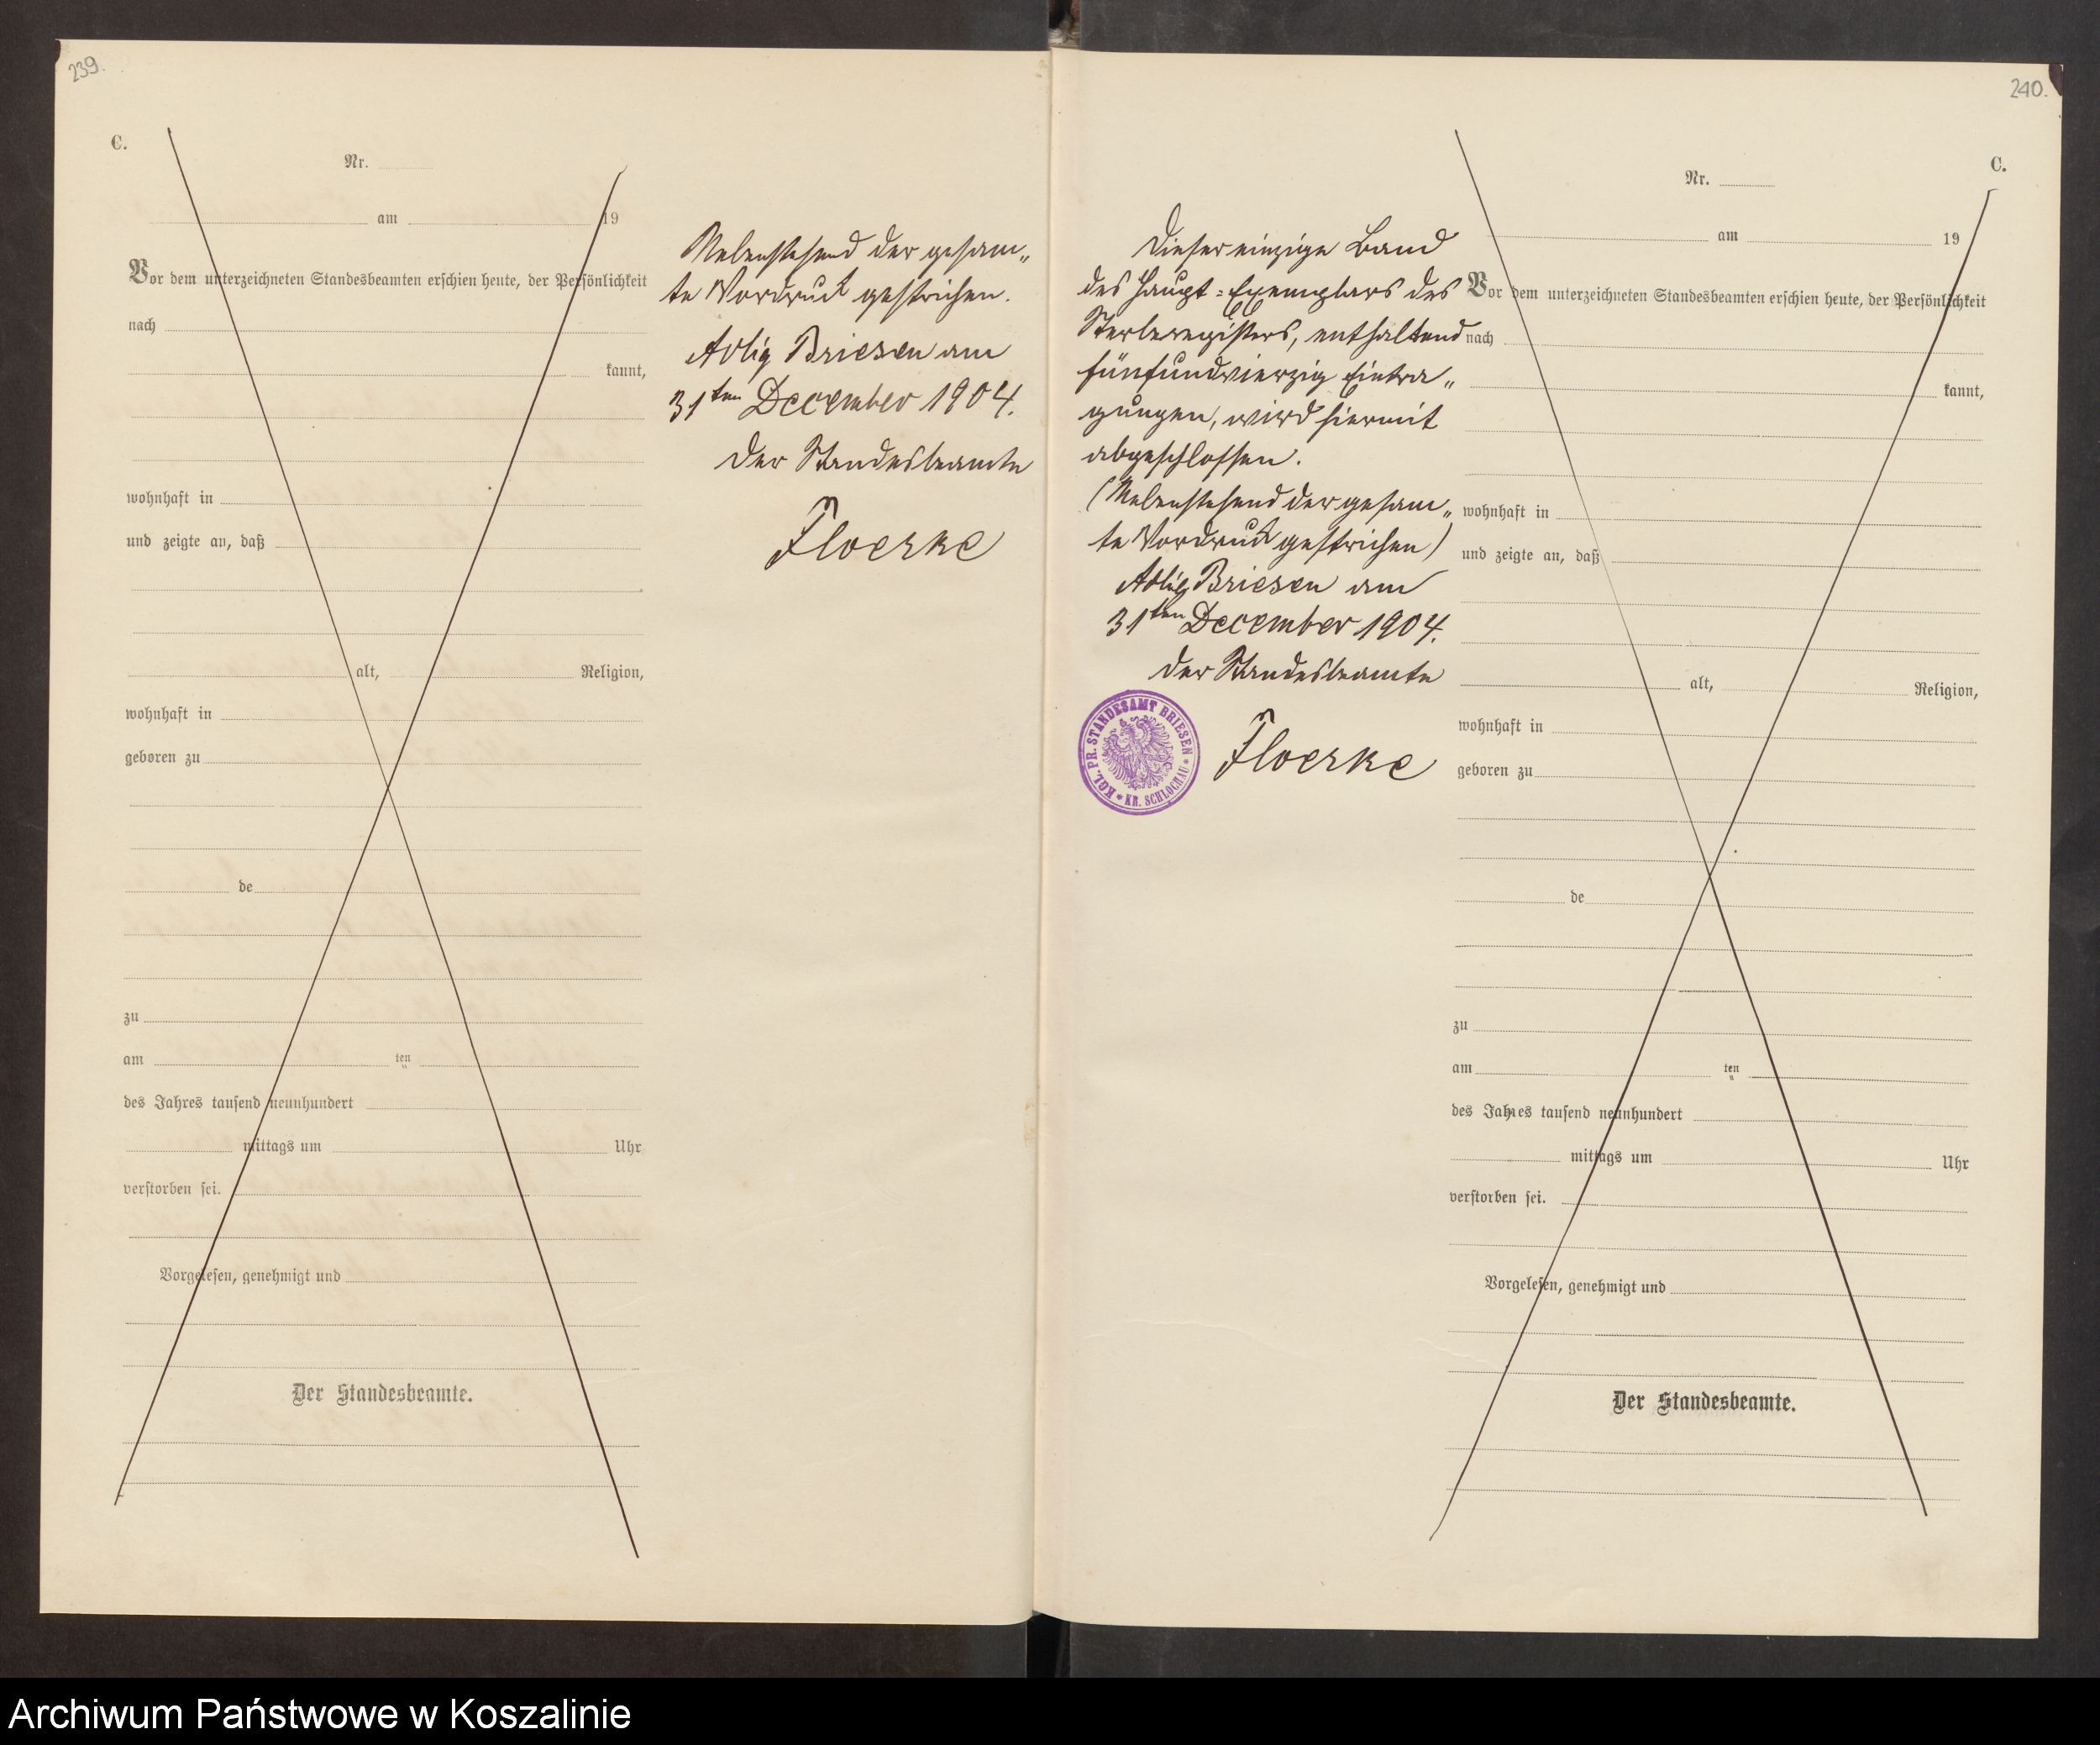 239.
C.
Nr.
am 19
Vor dem unterzeichneten Standesbeamten erschien heute, der Persönlichkeit
nach
kannt,
wohnhaft in
und zeigte an, daß
alt, Religion,
wohnhaft in
geboren zu
de
zu
am ten
des Jahres tausend neunhundert
mittags um Uhr
verstorben sei.
Vorgelesen, genehmigt und
Der Standesbeamte.
Nebenstehend der gesam„
te Vordruck gestrichen.
Adlig Briesen am
31ten December 1904.
Der Standesbeamte
Floerke
240.
C.
Dieser einzige Band
des Haupt-Exemplars des
Sterberegisters, enthaltend
fünfundvierzig Eintra„
gungen, wird hiermit
abgeschlossen.
(Nebenstehend der gesam„
te Vordruck gestrichen)
Adlig Briesen am
31ten December 1904.
Der Standesbeamte
Floerke
KGL. PR. STANDESAMT BRIESEN
* KR. SCHLOCHAU *
Nr.
am 19
Vor dem unterzeichneten Standesbeamten erschien heute, der Persönlichkeit
nach
kannt,
wohnhaft in
und zeigte an, daß
alt, Religion,
wohnhaft in
geboren zu
de
zu
am ten
des Jahres tausend neunhundert
mittags um Uhr
verstorben sei.
Vorgelesen, genehmigt und
Der Standesbeamte.
Archiwum Państwowe w Koszalinie